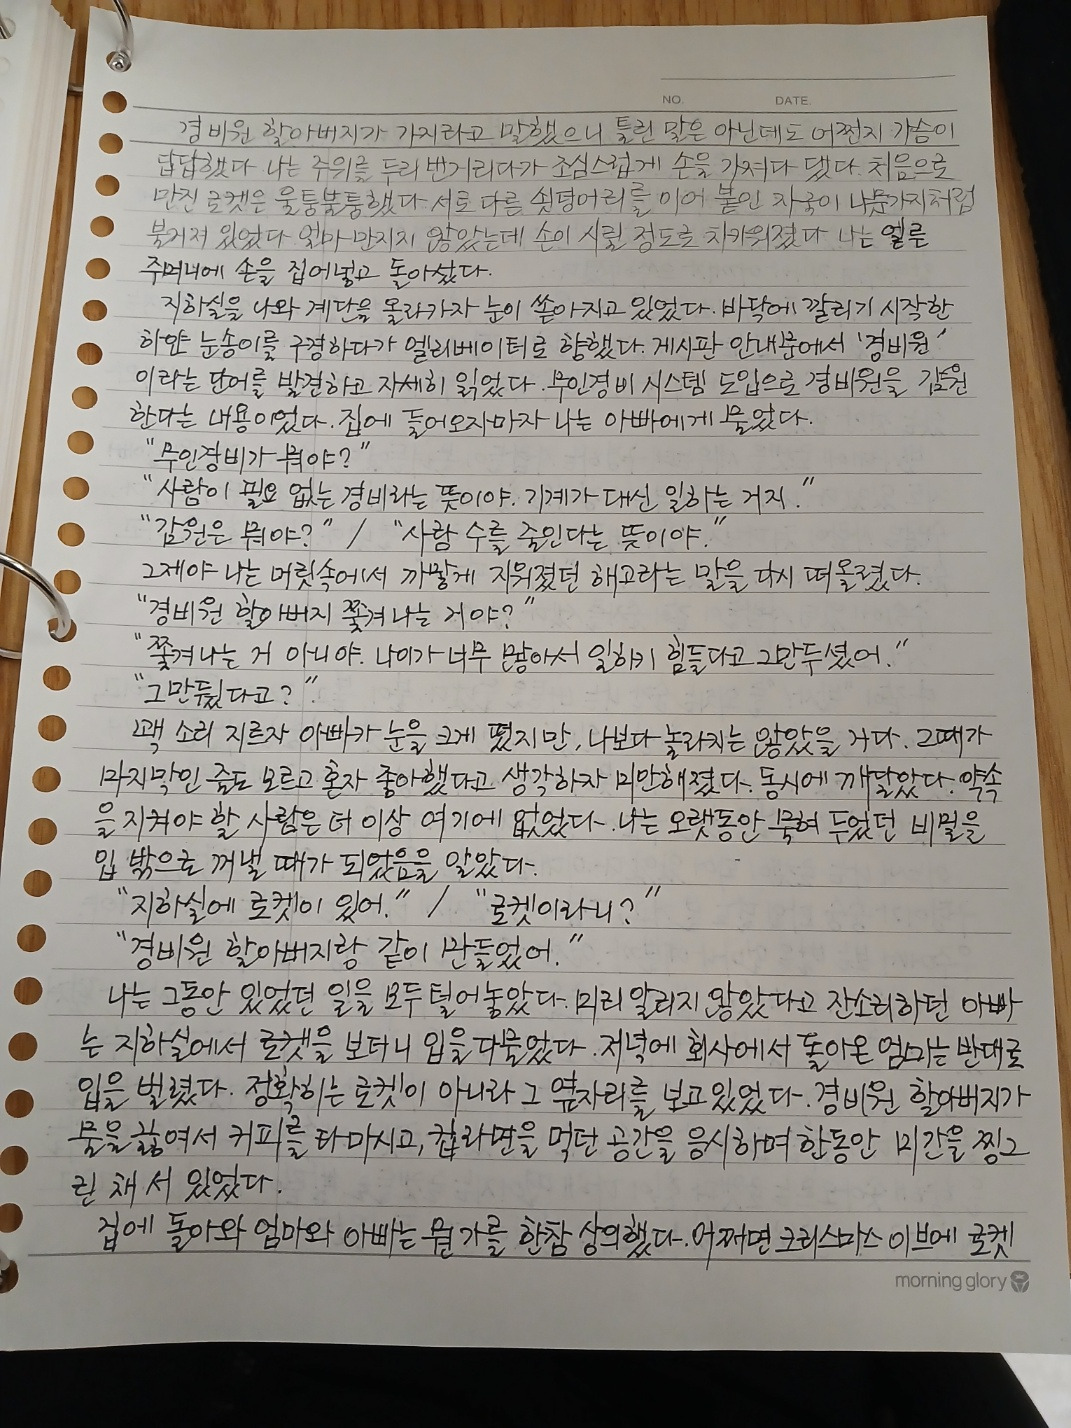 NO. DATE.
경비원 할아버지가 가지라고 말했으니 틀린 말은 아닌데도 어쩐지 가슴이
답답했다. 나는 주위를 두리번거리다가 조심스럽게 손을 가져다 댔다. 처음으로
만진 로켓은 울퉁불퉁했다. 서로 다른 쇳덩어리를 이어 붙인 자국이 나뭇가지처럼
불거져 있었다. 얼마 만지지 않았는데 손이 시릴 정도로 차가워졌다. 나는 얼른
주머니에 손을 집어넣고 돌아섰다.
지하실을 나와 계단을 올라가자 눈이 쏟아지고 있었다. 바닥에 깔리기 시작한
하얀 눈송이를 구경하다가 엘리베이터로 향했다. 게시판 안내문에서 '경비원'
이라는 단어를 발견하고 자세히 읽었다. 무인경비 시스템 도입으로 경비원을 감원
한다는 내용이었다. 집에 들어오자마자 나는 아빠에게 물었다.
"무인경비가 뭐야?"
"사람이 필요 없는 경비라는 뜻이야. 기계가 대신 일하는 거지."
"감원은 뭐야?" / "사람 수를 줄인다는 뜻이야."
그제야 나는 머릿속에서 까맣게 지워졌던 해고라는 말을 다시 떠올렸다.
"경비원 할아버지 쫓겨나는 거야?"
"쫓겨나는 거 아니야. 나이가 너무 많아서 일하기 힘들다고 그만두셨어."
"그만뒀다고?"
꽥 소리 지르자 아빠가 눈을 크게 떴지만, 나보다 놀라지는 않았을 거다. 그때가
마지막인 줄도 모르고 혼자 좋아했다고 생각하자 미안해졌다. 동시에 깨달았다. 약속
을 지켜야 할 사람은 더 이상 여기에 없었다. 나는 오랫동안 묵혀 두었던 비밀을
입 밖으로 꺼낼 때가 되었음을 알았다.
"지하실에 로켓이 있어." / "로켓이라니?"
"경비원 할아버지랑 같이 만들었어."
나는 그동안 있었던 일을 모두 털어놓았다. 미리 알리지 않았다고 잔소리하던 아빠
는 지하실에서 로켓을 보더니 입을 다물었다. 저녁에 회사에서 돌아온 엄마는 반대로
입을 벌렸다. 정확히는 로켓이 아니라 그 옆자리를 보고 있었다. 경비원 할아버지가
물을 끓여서 커피를 타 마시고, 컵라면을 먹던 공간을 응시하며 한동안 미간을 찡그
린 채 서 있었다.
집에 돌아와 엄마와 아빠는 뭔가를 한참 상의했다. 어쩌면 크리스마스 이브에 로켓
morning glory